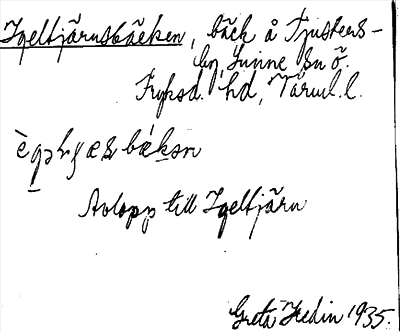 Igeltjärnsbäcken, bäck å Tjusters-
by, Sunne sn Ö.
Fryksd. hd, Värml. l.
Avlopp till Igeltjärn
Greta Hedin 1935.